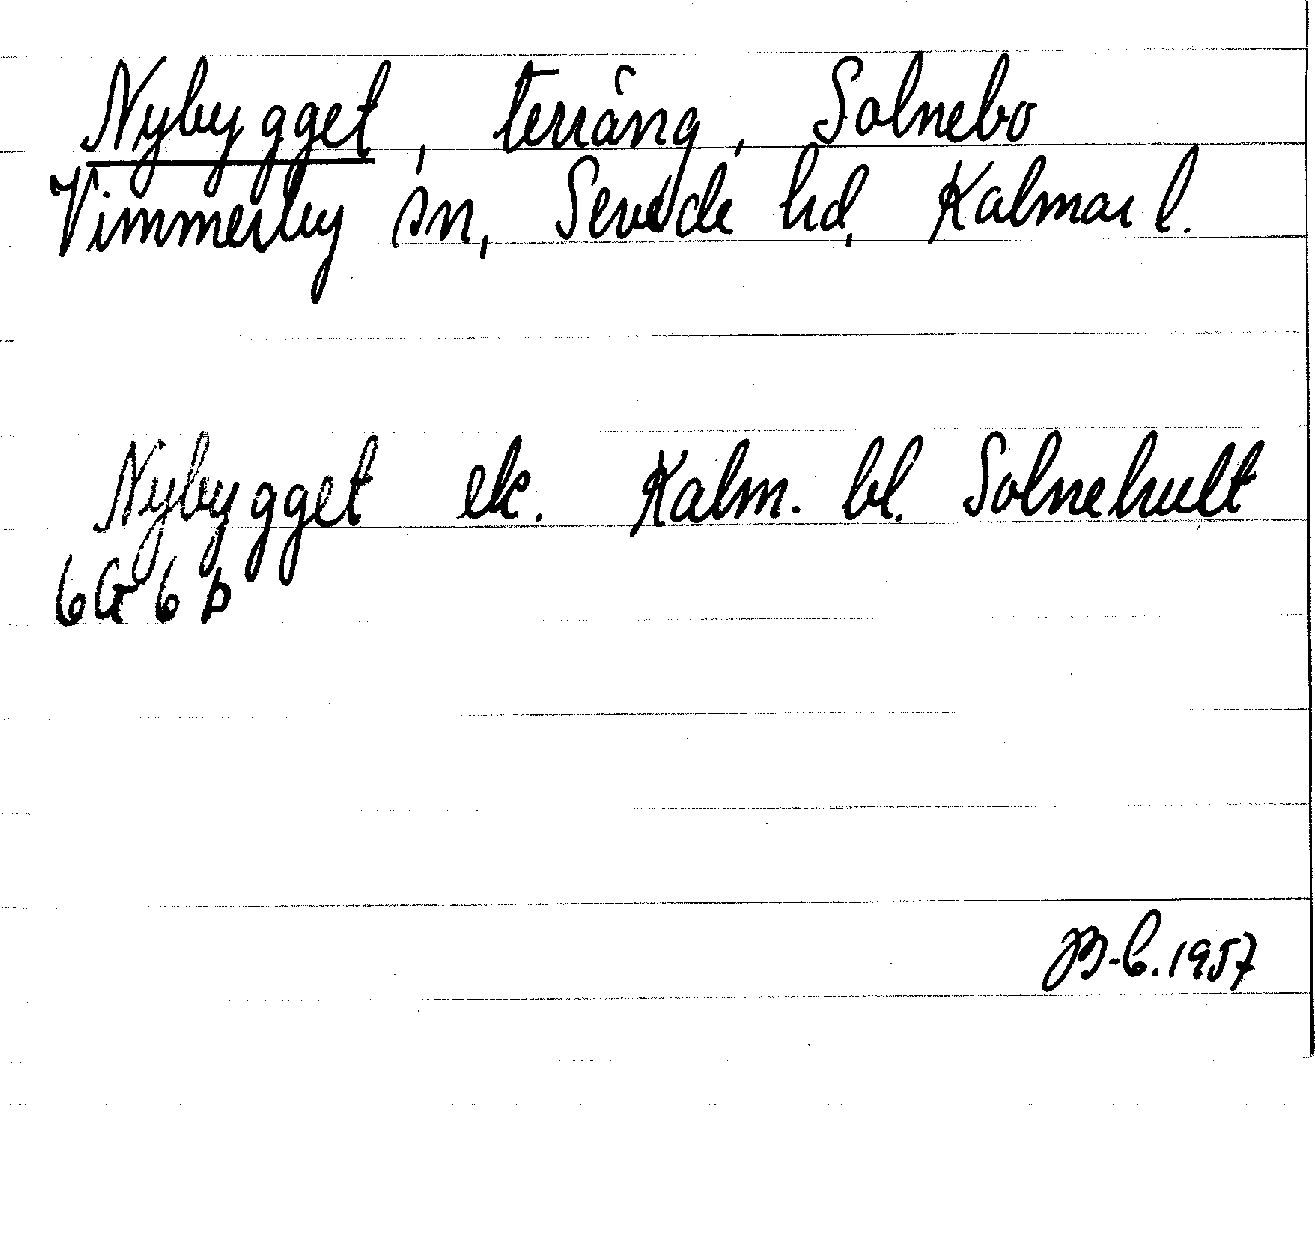 Nybygget, terräng, Solnebo
Vimmerby sn, Sevede hd, Kalmar l.
Nybygget ek. Kalm. bl. Solnehult
6G 6 b
B-b. 1957